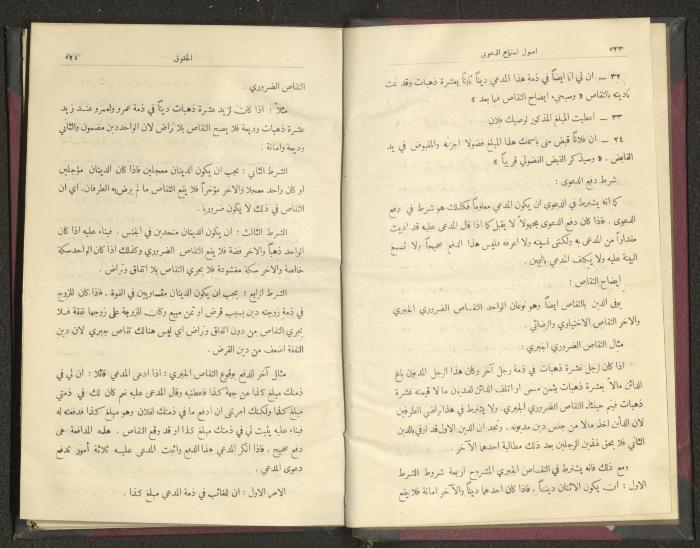 ٥٢٣ اصول استماع الدعوى
٣٢ — ان لي انا ايضاً في ذمة هذا المدعي ديناً ثابتاً بعشرة ذهبات وقد تمت
تأديته بالتقاص « وسيجيء ايضاح التقاص فيما بعد »
٣٣ — اعطيت المبلغ المذكور لوصيك فلان
٣٤ — ان فلاناً قبض مني باسمك هذا المبلغ فضولا اجزته والمقبوض في يد
القابض . « وسيذكر القبض الفضولي قريباً »
شرط دفع الدعوى :
كما انه يشترط في الدعوى ان يكون المدعي معلوماً فكذلك هو شرط في دفع
الدعوى . فاذا كان دفع الدعوى مجهولاً لا يقبل كما اذا قال المدعى عليه قد اديت
مقداراً من المدعى به ولكنني نسيته ولا اعرفه فليس هذا الدفع صحيحاً ولا تسمع
البينة عليه ولا يكلف المدعي باليمين .
ايضاح التقاص :
يوفى الدين بالتقاص ايضاً وهو نوعان الواحد التقاص الضروري الجبري
والآخر التقاص الاختياري والرضائي .
مثال التقاص الضروري الجبري :
اذا كان لرجل عشرة ذهبات في ذمة رجل آخر وكان هذا الرجل المديون باع
للدائن مالاً بعشرة ذهبات بثمن مسمى او اتلف الدائن للمديون ما لا قيمته عشرة
ذهبات فيتم حينئذ التقاص الضروري الجبري. ولا يشترط في هذا تراضي الطرفين
لان الدائن اخذ مالا من جنس دين مديونه . ونجد ان الدين الاول قد اوفي بالدين
الثاني فلا يحق لهذين الرجلين بعد ذلك مطالبة احدهما الآخر .
ومع ذلك فانه يشترط في التقاص الجبري المشروح اربعة شروط الشرط
الاول : ان يكون الاثنان ديناً . فاذا كان احدهما ديناً والآخر امانة فلا يقع
الحقوق ٥٢٤
التقاص الضروري .
مثلاً : اذا كان لزيد عشرة ذهبات ديناً في ذمة عمرو ولعمرو عند زيد
عشرة ذهبات وديعة فلا يصح التقاص بلا تراض لان الواحد دين مضمون والثاني
وديعة وامانة .
الشرط الثاني : يجب ان يكون الدينان معجلين فاذا كان الدينان مؤجلين
او كان واحد معجلا والاخر مؤخراً فلا يقع التقاص ما لم يرض به الطرفان. اي ان
التقاص في ذلك لا يكون ضرورياً .
الشرط الثالث : ان يكون الدينان متحدين في الجنس . فبناء عليه اذا كان
الواحد ذهباً والاخر فضة فلا يقع التقاص الضروري وكذلك اذا كان الواحد سكة
خالصة والاخر سكة مغشوشة فلا يجري التقاص بلا اتفاق وتراض .
الشرط الرابع : يجب ان يكون الدينان متساويين في القوة . فاذا كان للزوج
في ذمة زوجته دين بسبب قرض او ثمن مبيع وكان للزوجة على زوجها نفقة فلا
يجري التقاص من دون اتفاق وتراض اي ليس هنالك تقاص جبري لان دين
النفقة اضعف من دين القرض .
مثال آخر للدفع بوقوع التقاص الجبري : اذا ادعى المدعي قائلا : ان لي في
ذمتك مبلغ كذا من جهة كذا فاعطنيه وقال المدعى عليه نعم كان لك في ذمتي
مبلغ كذا ولكنك امرتني ان ادفع ما في ذمتك لفلان وهو مبلغ كذا فدفعته له
فبناء عليه يثبت لي في ذمتك مبلغ كذا او قد وقع التقاص . هذه المدافعة هي
دفع صحيح . فاذا انكر المدعي هذا الدفع واثبت المدعى عليه ثلاثة أمور تدفع
دعوى المدعي .
الامر الاول : ان للغائب في ذمة المدعي مبلغ كذا .